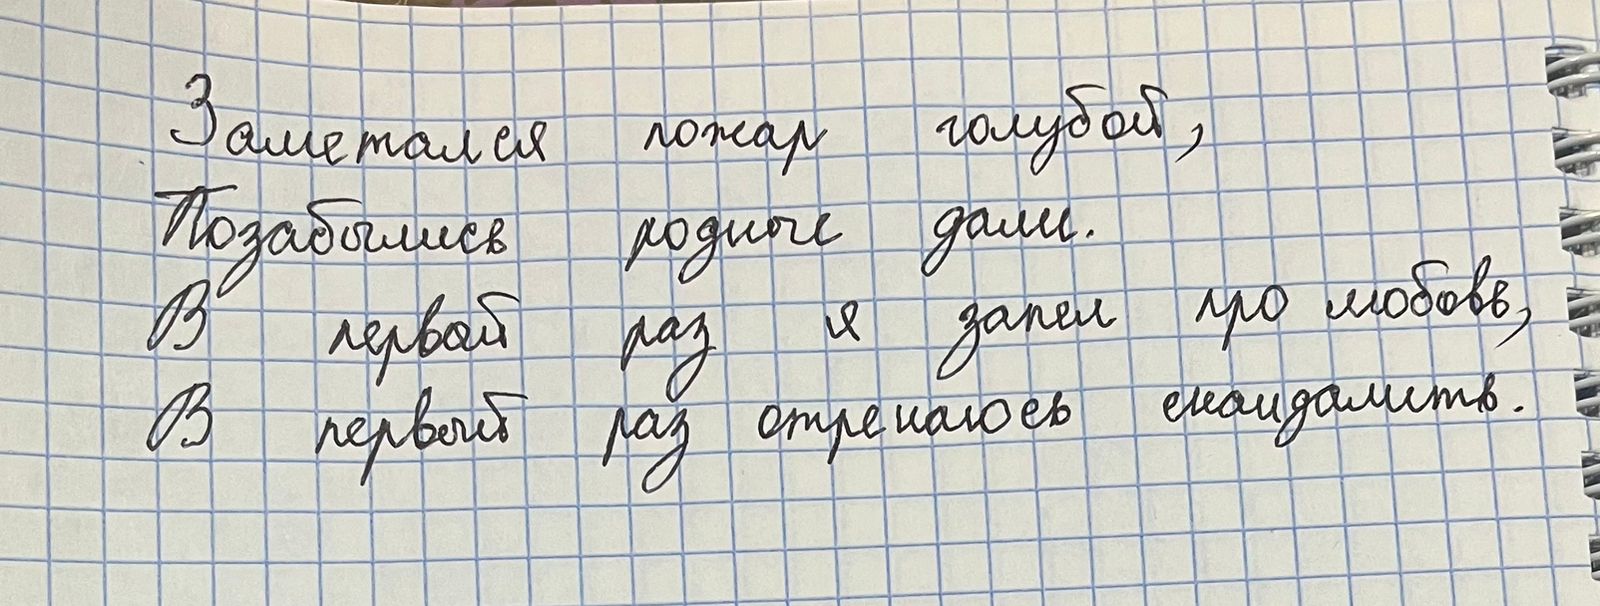 Заметался пожар голубой,
Позабылись родные дали.
В первый раз я запел про любовь,
В первый раз отрекаюсь скандалить.